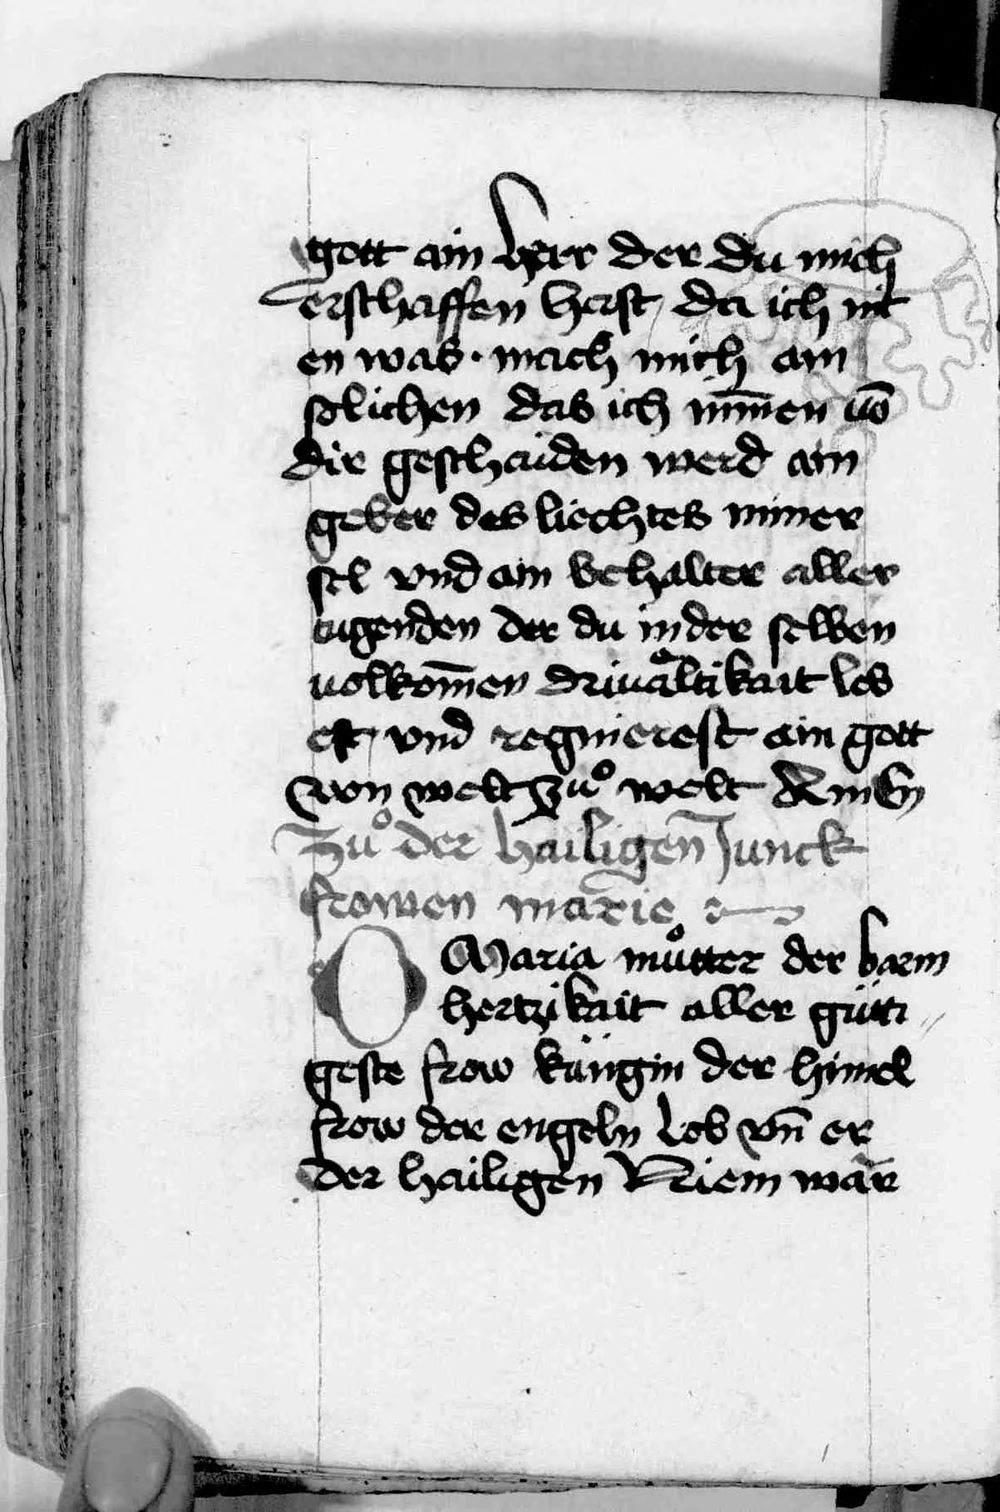 gott ain herr der du mich
erschaffen hast / da ich nit
en was · mach mich ain
solichen das ich nim̄en uō
dir geschaiden werd ain
geber des liechtes miner
sel vnd ain behalter aller
tugenden der du in der selben
uolkom̄en driuaͤltikait leb
est / vnd regnierest ain gott
von welt zuͦ welt Amen
Zuͦ der hailigen Junck
frowen marie
O Maria muͦtter der barm
hertzikait aller gütti
geste frow küngin der himel
frow der engeln Lob vn̄ er
der hailigen Niem war